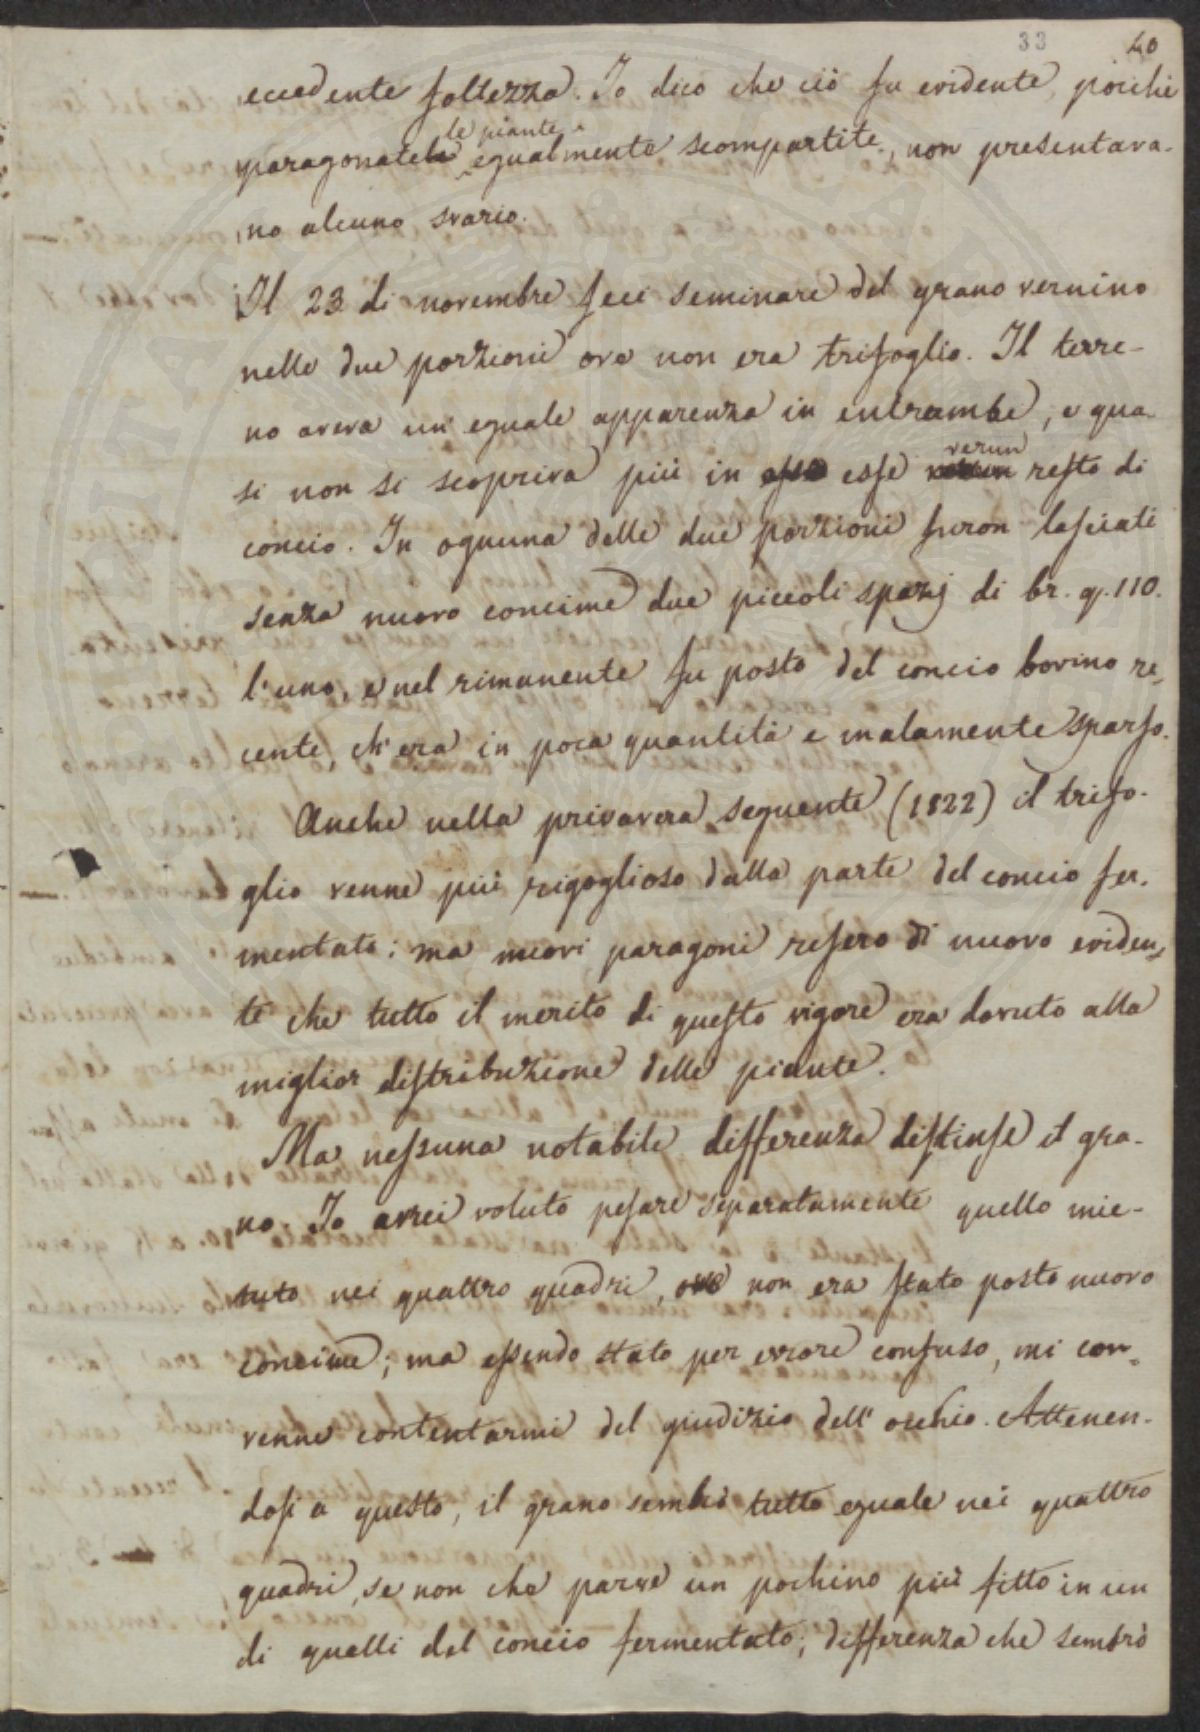 33
40
eccedente foltezza. Io dico che ciò fu evidente, poichè
le piante
paragonatele egualmente scompartite, non presentava-
no alcuno svario.
Il 23 di novembre feci seminare del grano vernino
nelle due porzioni ove non era trifoglio. Il terre-
no aveva un' eguale apparenza in entrambe, e qua-
verun
si non si scopriva più in esse resto di
concio. In ognuna delle due porzioni furon lasciati
senza nuovo concime due piccoli spazj di br. q. 110.
l'uno, e nel rimanente fu posto del concio bovino re-
cente, ch'era in poca quantità e malamente sparso.
Anche nella primavera seguente (1822) il trifo-
glio venne più rigoglioso dalla parte del concio fer-
mentato: ma nuovi paragoni resero di nuovo eviden-
te che tutto il merito di questo vigore era dovuto alla
miglior distribuzione delle piante.
Ma nessuna notabile differenza distinse il gra-
no. Io avrei voluto pesare separatamente quello mie-
tuto nei quattro quadri, ove non era stato posto nuovo
concime; ma essendo stato per errore confuso, mi con-
venne contentarmi del giudizio dell' occhio. Attenen-
dosi a questo, il grano sembrò tutto eguale nei quattro
quadri, se non che parve un pochino più fitto in un
di quelli del concio fermentato; differenza che sembrò